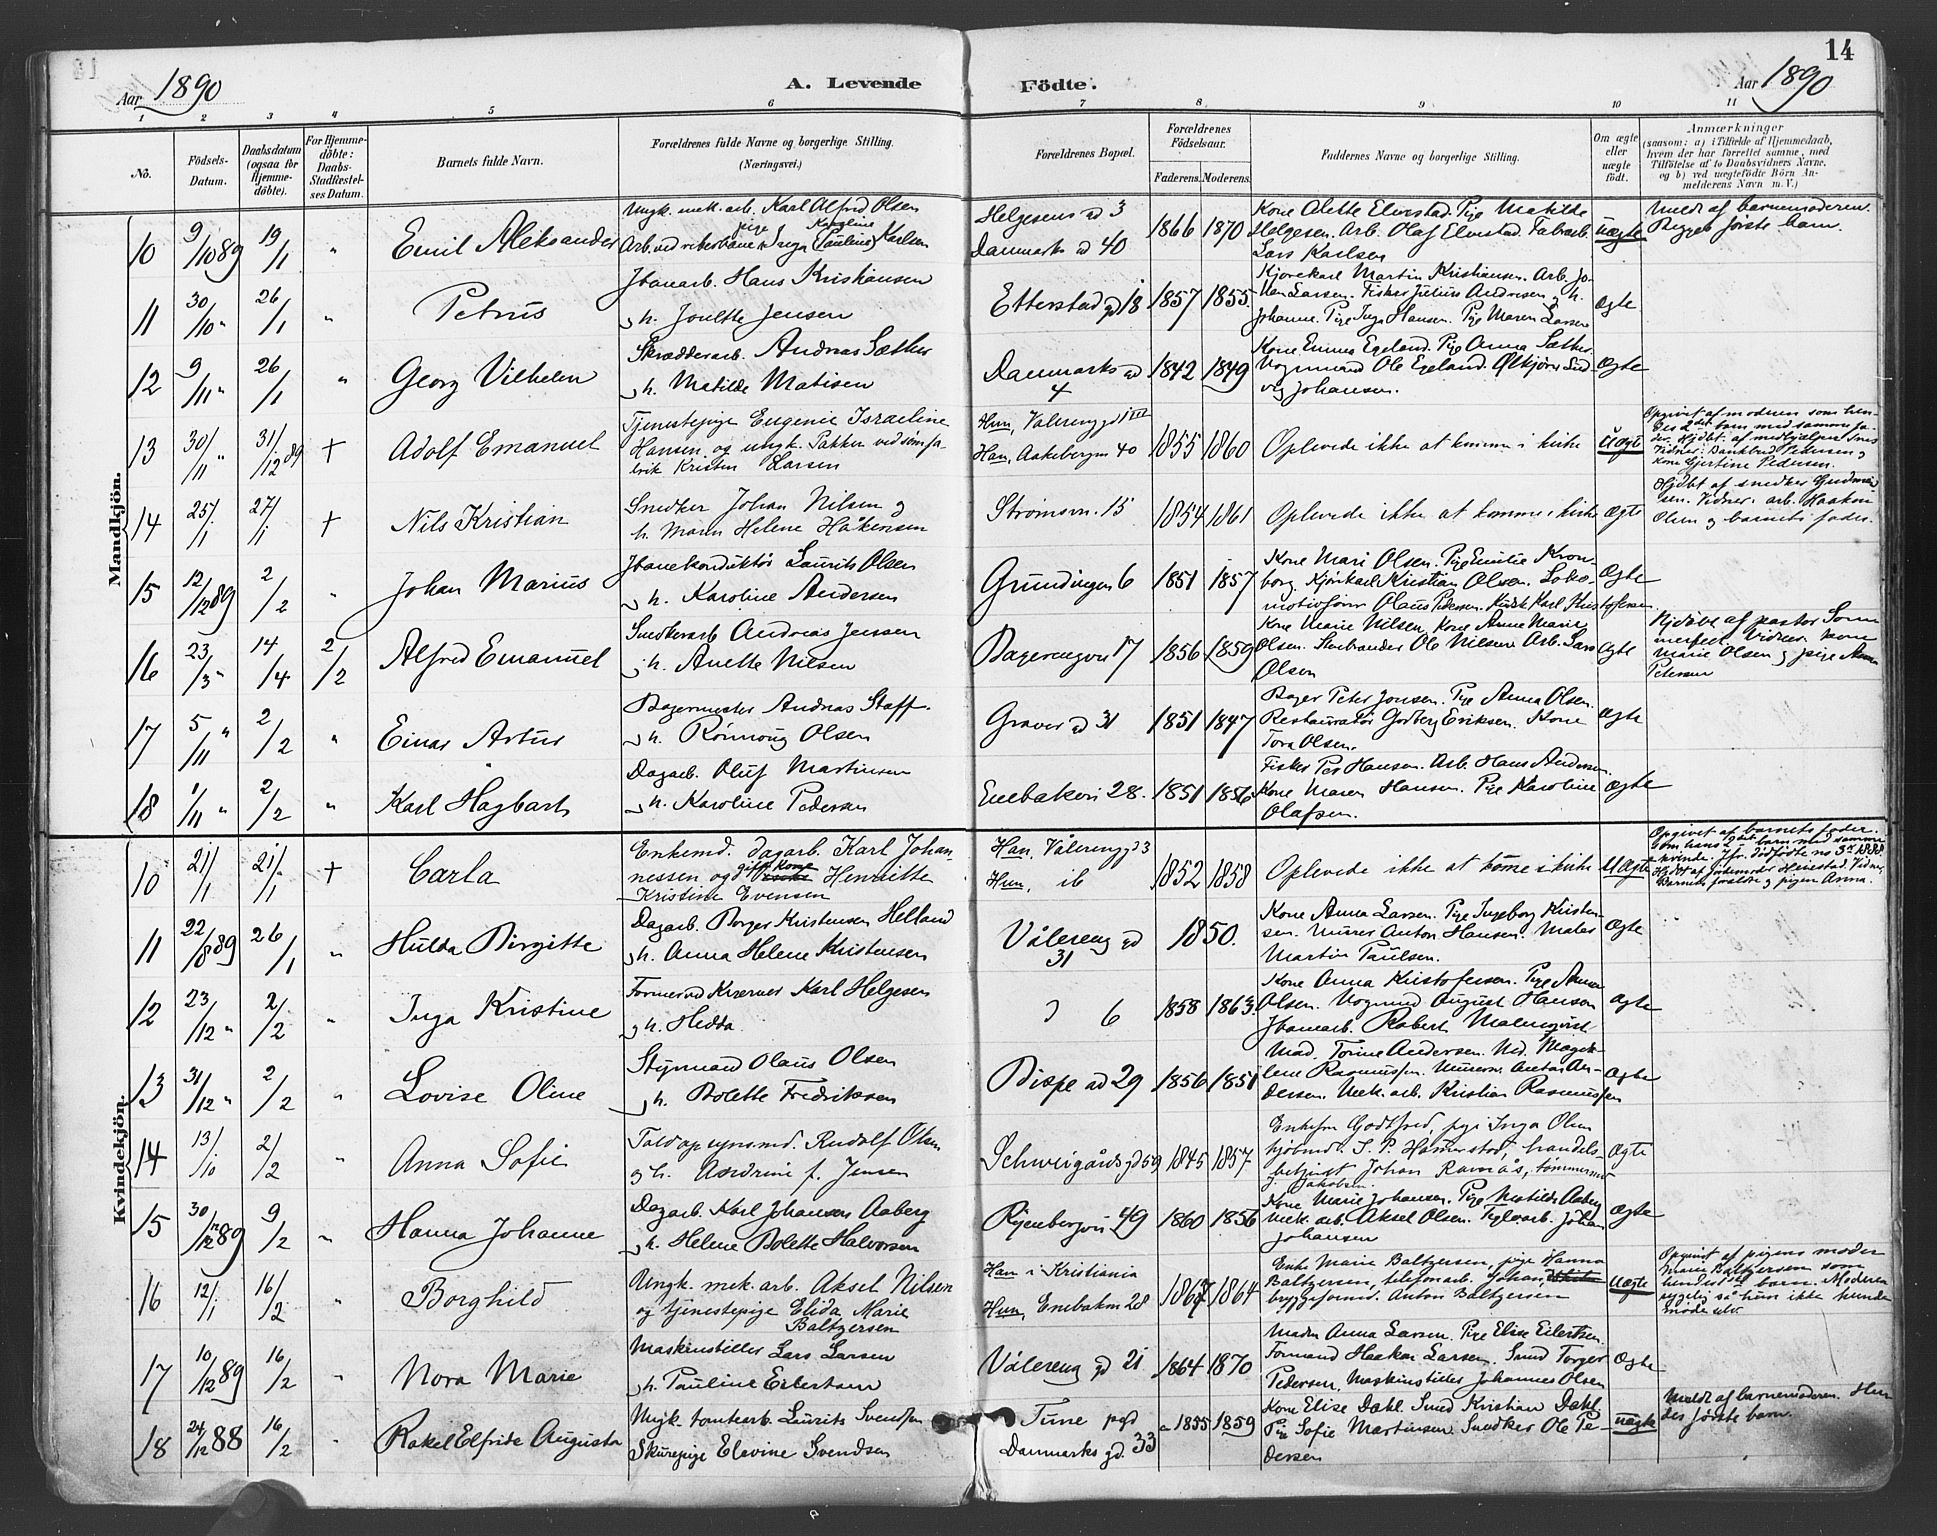 14
Aar 1890
A. Levende Födte.
Aar 1890
1 2 3 4 5 6 7 8 9 10 11
No.
Födsels-Datum.
Daabsdatum (ogsaa for Hjemme-döbte).
For Hjemme-döbte: Daabs-Stadfæstelses Datum.
Barnets fulde Navn.
Forældrenes fulde Navne og borgerlige Stilling.
(Næringsvei.)
Forældrenes Bopæl.
Forældrenes Födselsaar.
Faderens. Moderens.
Faddernes Navne og borgerlige Stilling.
Om ægte eller uægte födt.
Anmærkninger
(saasom: a) i Tilfælde af Hjemmedaab, hvem der har forrettet samme, med Tilföielse af to Daabsvidners Navne, og b) ved uægtefödte Börn Anmelderens Navn m. V.)
Mandkjön.
10 9/10 89 19/1 " Emil Aleksander
Ungk. mek. arb. Karl Alfred Olsen
Arb. ved rekerbane pige Inga Karoline Paulius Karlsen
Helgesens gd 3
Danmarks gd 40
1866 1870
Kone Alette Elvestad. Pige Matilde
Helgesen. Arb. Olaf Elvestad. Fabarb.
Lars Karlsen
uægte
Meldt af barnemoderen.
Begges første barn.
11 30/10 " 26/1 " Petrus
Jbanarb. Hans Kristiansen
og h. Joulette Jensen
Etterstad gd 18
1857 1855.
Kjørekarl Martin Kristiansen. Arb. Jo-
han Larsen. Fisker Julius Andresen og h.
Johanne. Pige Inga Hansen. Pige Maren Larsen
Ægte
12 9/11 " 26/1 " Georg Vilhelm
Skrædderarb. Andreas Sæther
og h. Matilde Matisen
Danmarks gd
4
1842 1849
Kone Emma Egeland. Pige Anna Sæther
Vognmand Ole Egeland. Ølkjører Lud-
vig Johansen.
Ægte
13 30/11 " 31/12 89 + Adolf Emanuel
Tjenestepige Eugenie Israeline
Hansen og ungk. Pakker ved sem.fa-
brik Kristen Larsen
Hun, Valereng gd III
Han, Aakebergvn 40
1855 1860
Oplevede ikke at komme i kirke
Uægte
Opgivet af moderen som hen-
des 2det barn med samme fa-
der. Hjdbt. af medhjælper
Vidner: Pedersen og
kone Gjertine Pedersen.
14 25/1 27/1 + Nils Kristian
Snedker Johan Nilsen og
h. Maren Helene Håkensen
Strømsvn. 15
1854 1861
Oplevede ikke at komme i kirke
Ægte
Hjdbt af snedker Gudmund-
sen. Vidner: arb. Haakon
Olsen og barnets fader.
15 12/12 89 2/2 " Johan Marius
Jbanekonduktør Laurits Olsen
og h. Karoline Andersen
Grundingen 6
1851 1857
Kone Mari Olsen. Pige Emilie Kron-
borg. Kjørkarl Kristian Olsen. Loko-
motivfører Olaus Pedersen. Kudsk Karl Kristofersen
Ægte
16 23/3 " 14/4 2/2 Alfred Emanuel
Snedkerarb Andreas Jenssen
og h. Anette Nilsen
Bagerengvn 17
1856 1859
Kone Marie Nilsen, Kone Anne Marie
Olsen. Ole Nilsen Arb. Lars
Olsen
Ægte
Hjdøbt af pastor Som-
merfelt. Vidner: kone
Marie Olsen og pige Anna
Petersen
17 5/11 " 2/2 " Einar Artur
Bagermester Andreas Staff.
og h. Rønnoug Olsen
Graver gd 31
1851 1847
Bager Peter Jonsen. Pige Anna Olsen.
Restauratør Godberg Eriksen. Kone
Tora Olsen.
Ægte
18 1/11 " 2/2 " Karl Hagbart
Dagarb. Oluf Martinsen
og h. Karoline Pedersen
Enebakvn 28.
1851 1856
Fisker Per Hansen. Arb. Hans Andersen.
Kone Maren Hansen. Pige Karoline
Olafsen.
Ægte
Kvindekjön.
10 21/1 21/1 + Carla
Enkemd. dagarb. Karl Johan-
nessen og gift kone Henriette
Kristine Evensen
Han, Vålereng gd 3
Hun, ib
1852 1858
Oplevede ikke at komme i kirke
Uægte
Opgivet af barnets fader.
som hans 2det barn med samme
kvinde jfr. dødfødte no 3 1888.
Hjdøbt af jordemoder Vidner,
Barnets forældre og pigen Anna.
11 22/8 89 26/1 " Hulda Birgitte
Dagarb. Borger Kristensen Helland
og h. Anna Helene Kristensen
Vålereng gd
31
1850.
Kone Anna Larsen. Pige Ingeborg Kristen-
sen. Murer Anton Hansen. Maler
Martin Paulsen.
Ægte
12 23/12 " 2/2 " Inga Kristine
Former ved Kværner Karl Helgesen
og h. Hedda
" 6
1858 1863.
Kone Anna Kristofersen. Pige Anna
Olsen. Vognmd August Hanson
Jbanarb. Robert Malmqvist
Ægte
13 31/12 " 2/2 " Lovise Oline
Styrmand Olaus Olsen
og h. Bolette Fredriksen
Bispe gd 29
1856 1851
Mad. Torine Andersen. Md. Magda-
lene Rasmussen. Murersv. Anton An-
dersen. Mek. arb. Kristian Rasmussen
Ægte
14 13/10 2/2 " Anna Sofie
Toldopsynsmd. Rudolf Olsen
og h. Andrine f. Jensen
Schweigårds gd 59
1845 1857
Enkefru Godtfred, pige Inga Olsen
kjøbmd. S. P. Hamerstad, handels-
betjent Johan Ramås, tømmermd
J. Jakobsen.
Ægte
15 30/12 89 9/2 " Hanna Johanne
Dagarb. Karl Johansen Aaberg
og h. Helene Bolette Halvorsen
Ryenbergvn 49
1860 1856
Kone Marie Johansen. Pige Matilde Aaberg
Mek. arb. Aksel Olsen. Teglv.arb. Johan
Johansen
Ægte
16 12/1 16/2 " Borghild
Ungk. mek. arb. Aksel Nilsen
og tjenestepige Elida Marie
Baltzersen
Han i Kristiania
Hun, Enebakvn 28
1867 1864
Enke Marie Baltzersen, pige Hanna
Baltzersen, telefonarb. Johan
bryggeformd. Anton Baltzersen
Uægte
Opgivet af pigens moder
Marie Baltzersen som
hendes barn. Moderen
sygelig så hun ikke kunde
møde selv.
17 10/12 89 16/2 " Nora Marie
Maskinstiller Lars Larsen
og h. Pauline Eilertsen
Vålereng gd 21
1864 1870
Madm Anna Larsen. Pige Elise Eilertsen.
Formand Haakon Larsen. Smed Torger
Pedersen, Maskinstiller Johannes Olsen
Ægte
18 24/12 88 16/2 " Rakel Elfride Augusta
Ungk. tomtearb. Laurits Svendsen
Skurepige Elevine Svendsen
Tune pgd
Danmarks gd. 33
a 1855 1859
Kone Elise Dahl. Smed Kristian Dahl.
Pige Sofie Martinsen. Snedker Ole Pe-
dersen
uægte
Meldt af barnemoderen. Hen-
des første barn.